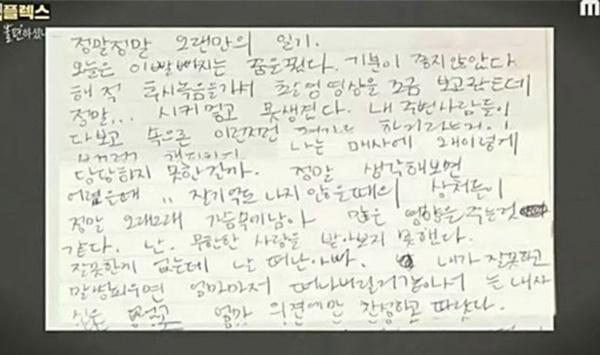 플렉스
불편하십니까
M
정말정말 오랜만의 일기.
오늘은 이빨빠지는 꿈을 꿨다. 기분이 좋지않았다
해적 후시녹음을가서 촬영영상을 조금 보고왔는데
정말... 시커멓고 못생겼다. 내 주변사람들이
다보고 속으론 이런저런 하겠지
나는 매사에 왜이렇게
당당하지 못한건가. 정말 생각해보면
어렸을때 .. 잘기억도 나지 않을때의 상처들이
정말 오래오래 가슴속에남아 많은 영향을 주는것
같다. 난. 무한한 사랑을 받아보지 못했다.
잘못한게 없는데 날 떠난아빠. 내가 잘못하고
말썽피우면 엄마마저 떠나버릴거같아서 늘 내자
신은 없고 엄마 의견에만 찬성하고 따랐다.